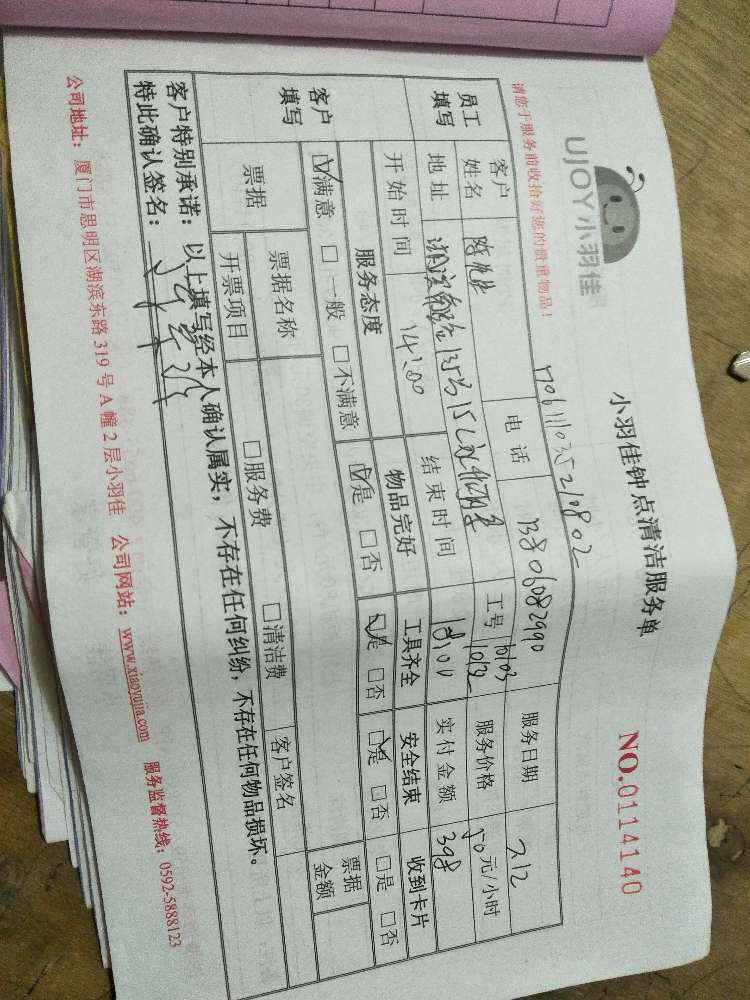 UJOY小羽佳
小羽佳钟点清洁服务单
NO.0114140
请您于服务前收拾好您的贵重物品!
1706111035210802
员工填写
客户姓名
电话 13806082990
工号 10103 10132
服务日期 212
地址
服务价格 50元/小时
开始时间 14:00
结束时间 18:00
实付金额 398
客户填写
服务态度 物品完好 工具齐全 安全结束 收到卡片
☑满意 □一般 □不满意 ☑是 □否 ☑是 □否 ☑是 □否 □是 □否
票据
票据名称 客户签名 票据金额
开票项目 □服务费 □清洁费
客户特别承诺:以上填写经本人确认属实,不存在任何纠纷,不存在任何物品损坏。
特此确认签名:
公司地址:厦门市思明区湖滨东路319号A幢2层小羽佳 公司网站:www.xiaoyujia.com 服务监督热线:0592-5888123